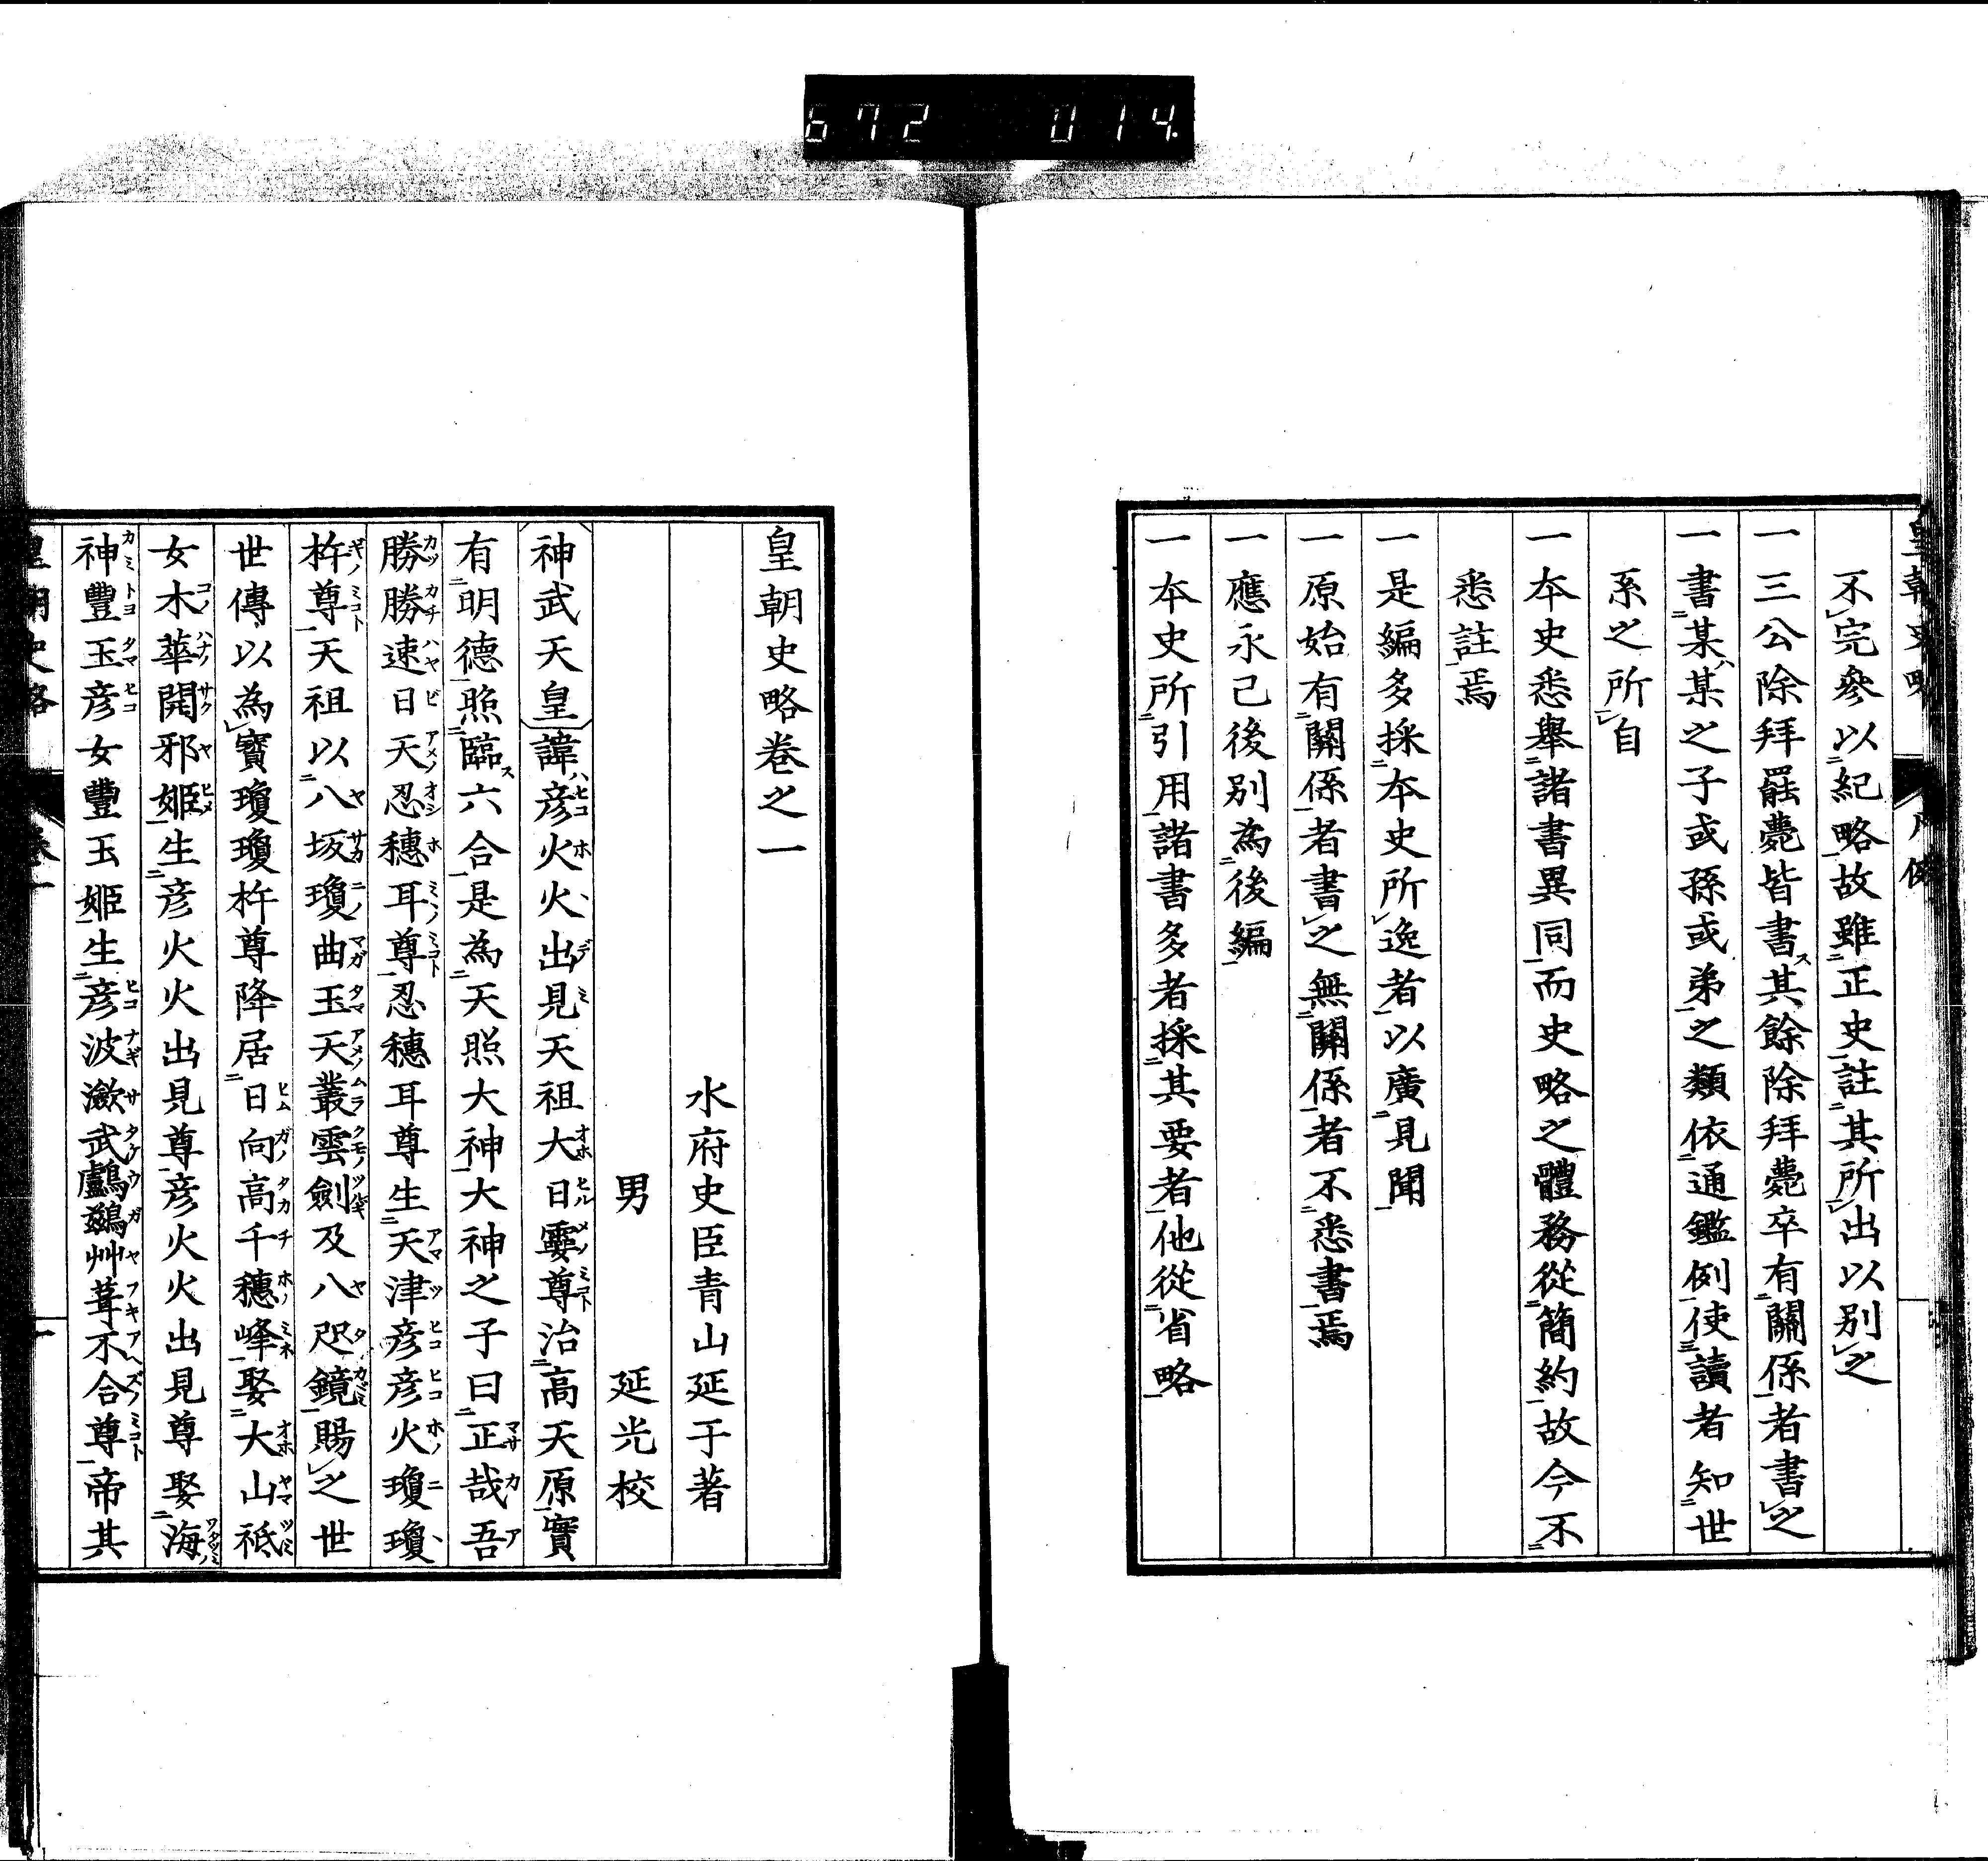 672 014
皇朝史略
不完參以紀略故雖正史註其所出以別之
一三公除拜罷薨皆書其餘除拜薨卒有關係者書之
一書某某之子或孫或弟之類依通鑑例使讀者知世
系之所自
一本史悉舉諸書異同而史略之體務從簡約故今不
悉註焉
一是編多採本史所逸者以廣見聞
一原始有關係者書之無關係者不悉書焉
一應永己後別為後編
一本史所引用諸書多者採其要者他從省略
皇朝史略卷之一
水府史臣青山延于著
男 延光校
神武天皇諱彦火火出見天祖大日孁尊治高天原實
有明德照臨六合是為天照大神大神之子曰正哉吾
勝勝速日天忍穗耳尊忍穗耳尊生天津彦彦火瓊瓊
杵尊天祖以八坂瓊曲玉天叢雲劍及八咫鏡賜之世
世傳以為寶瓊瓊杵尊降居日向高千穗峰娶大山祇
女木華開邪姫生彦火火出見尊彦火火出見尊娶海
神豐玉彦女豐玉姫生彦波瀲武鸕鷀艸葺不合尊帝其
皇朝史略 卷一 一